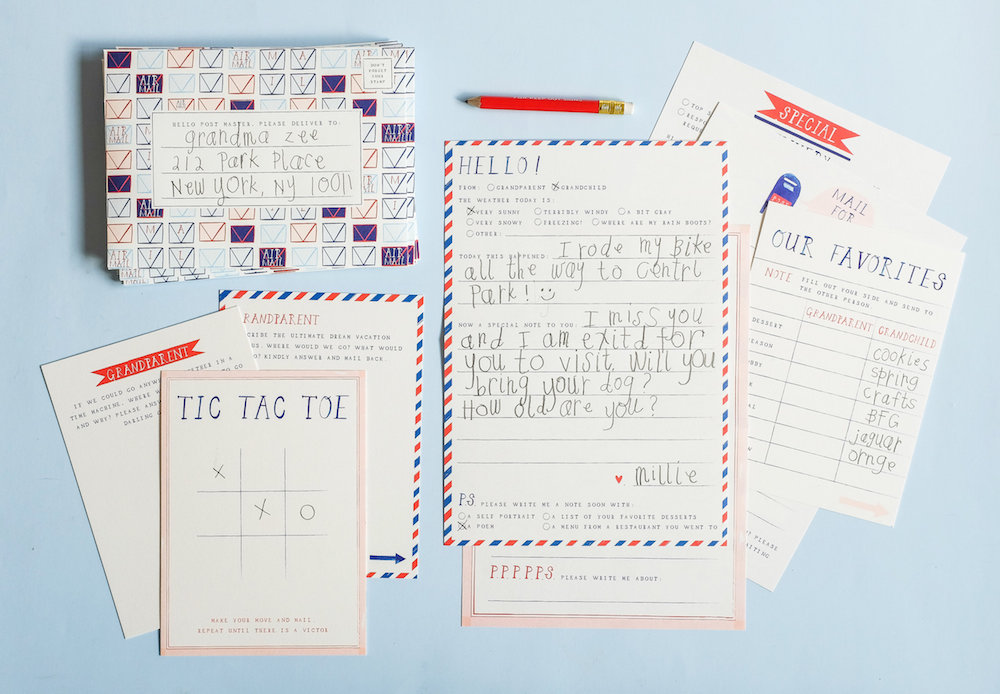 DON'T
FORGET
YOUR
STAMP
HELLO POST MASTER, PLEASE DELIVER TO:
grandma zee
212 Park Place
New York, NY 10011
AIR MAIL
HELLO!
FROM: GRANDPARENT GRANDCHILD
THE WEATHER TODAY IS:
VERY SUNNY TERRIBLY WINDY A BIT GRAY
VERY SNOWY FREEZING! WHERE ARE MY RAIN BOOTS?
OTHER:
TODAY THIS HAPPENED: I rode my Bike
all the way to Centrl
Park!
NOW A SPECIAL NOTE TO YOU: I miss you
and I am exitd for
you to visit. Will you
bring your dog?
How old are you?
Millie
P.S. PLEASE WRITE ME A NOTE SOON WITH:
A SELF PORTRAIT A LIST OF YOUR FAVORITE DESSERTS
A POEM A MENU FROM A RESTAURANT YOU WENT TO
P.P.P.P.P.S. PLEASE WRITE ME ABOUT:
TOP
SPECIAL
MAIL
FOR
OUR FAVORITES
NOTE FILL OUT YOUR SIDE AND SEND TO
THE OTHER PERSON.
GRANDPARENT GRANDCHILD
DESSERT cookies
SEASON spring
crafts
BFG
jaguar
ornge
PLEASE
GRANDPARENT
IF WE COULD GO ANYWHERE
TIME MACHINE, WHERE
AND WHY? PLEASE
DARLING
THE ULTIMATE DREAM VACATION
WHERE WOULD WE GO? WHAT WOULD
KINDLY ANSWER AND MAIL BACK.
TIC TAC TOE
X
X O
MAKE YOUR MOVE AND MAIL.
REPEAT UNTIL THERE IS A VICTOR